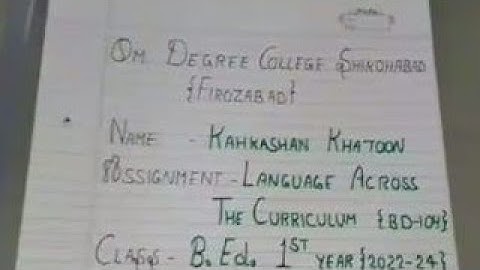 Om Degree College Shikohabad
{Firozabad}
Name - Kahkashan Khatoon
Assignment - Language Across
The Curriculum {BD-104}
Class - B. Ed. 1ST year {2022-24}